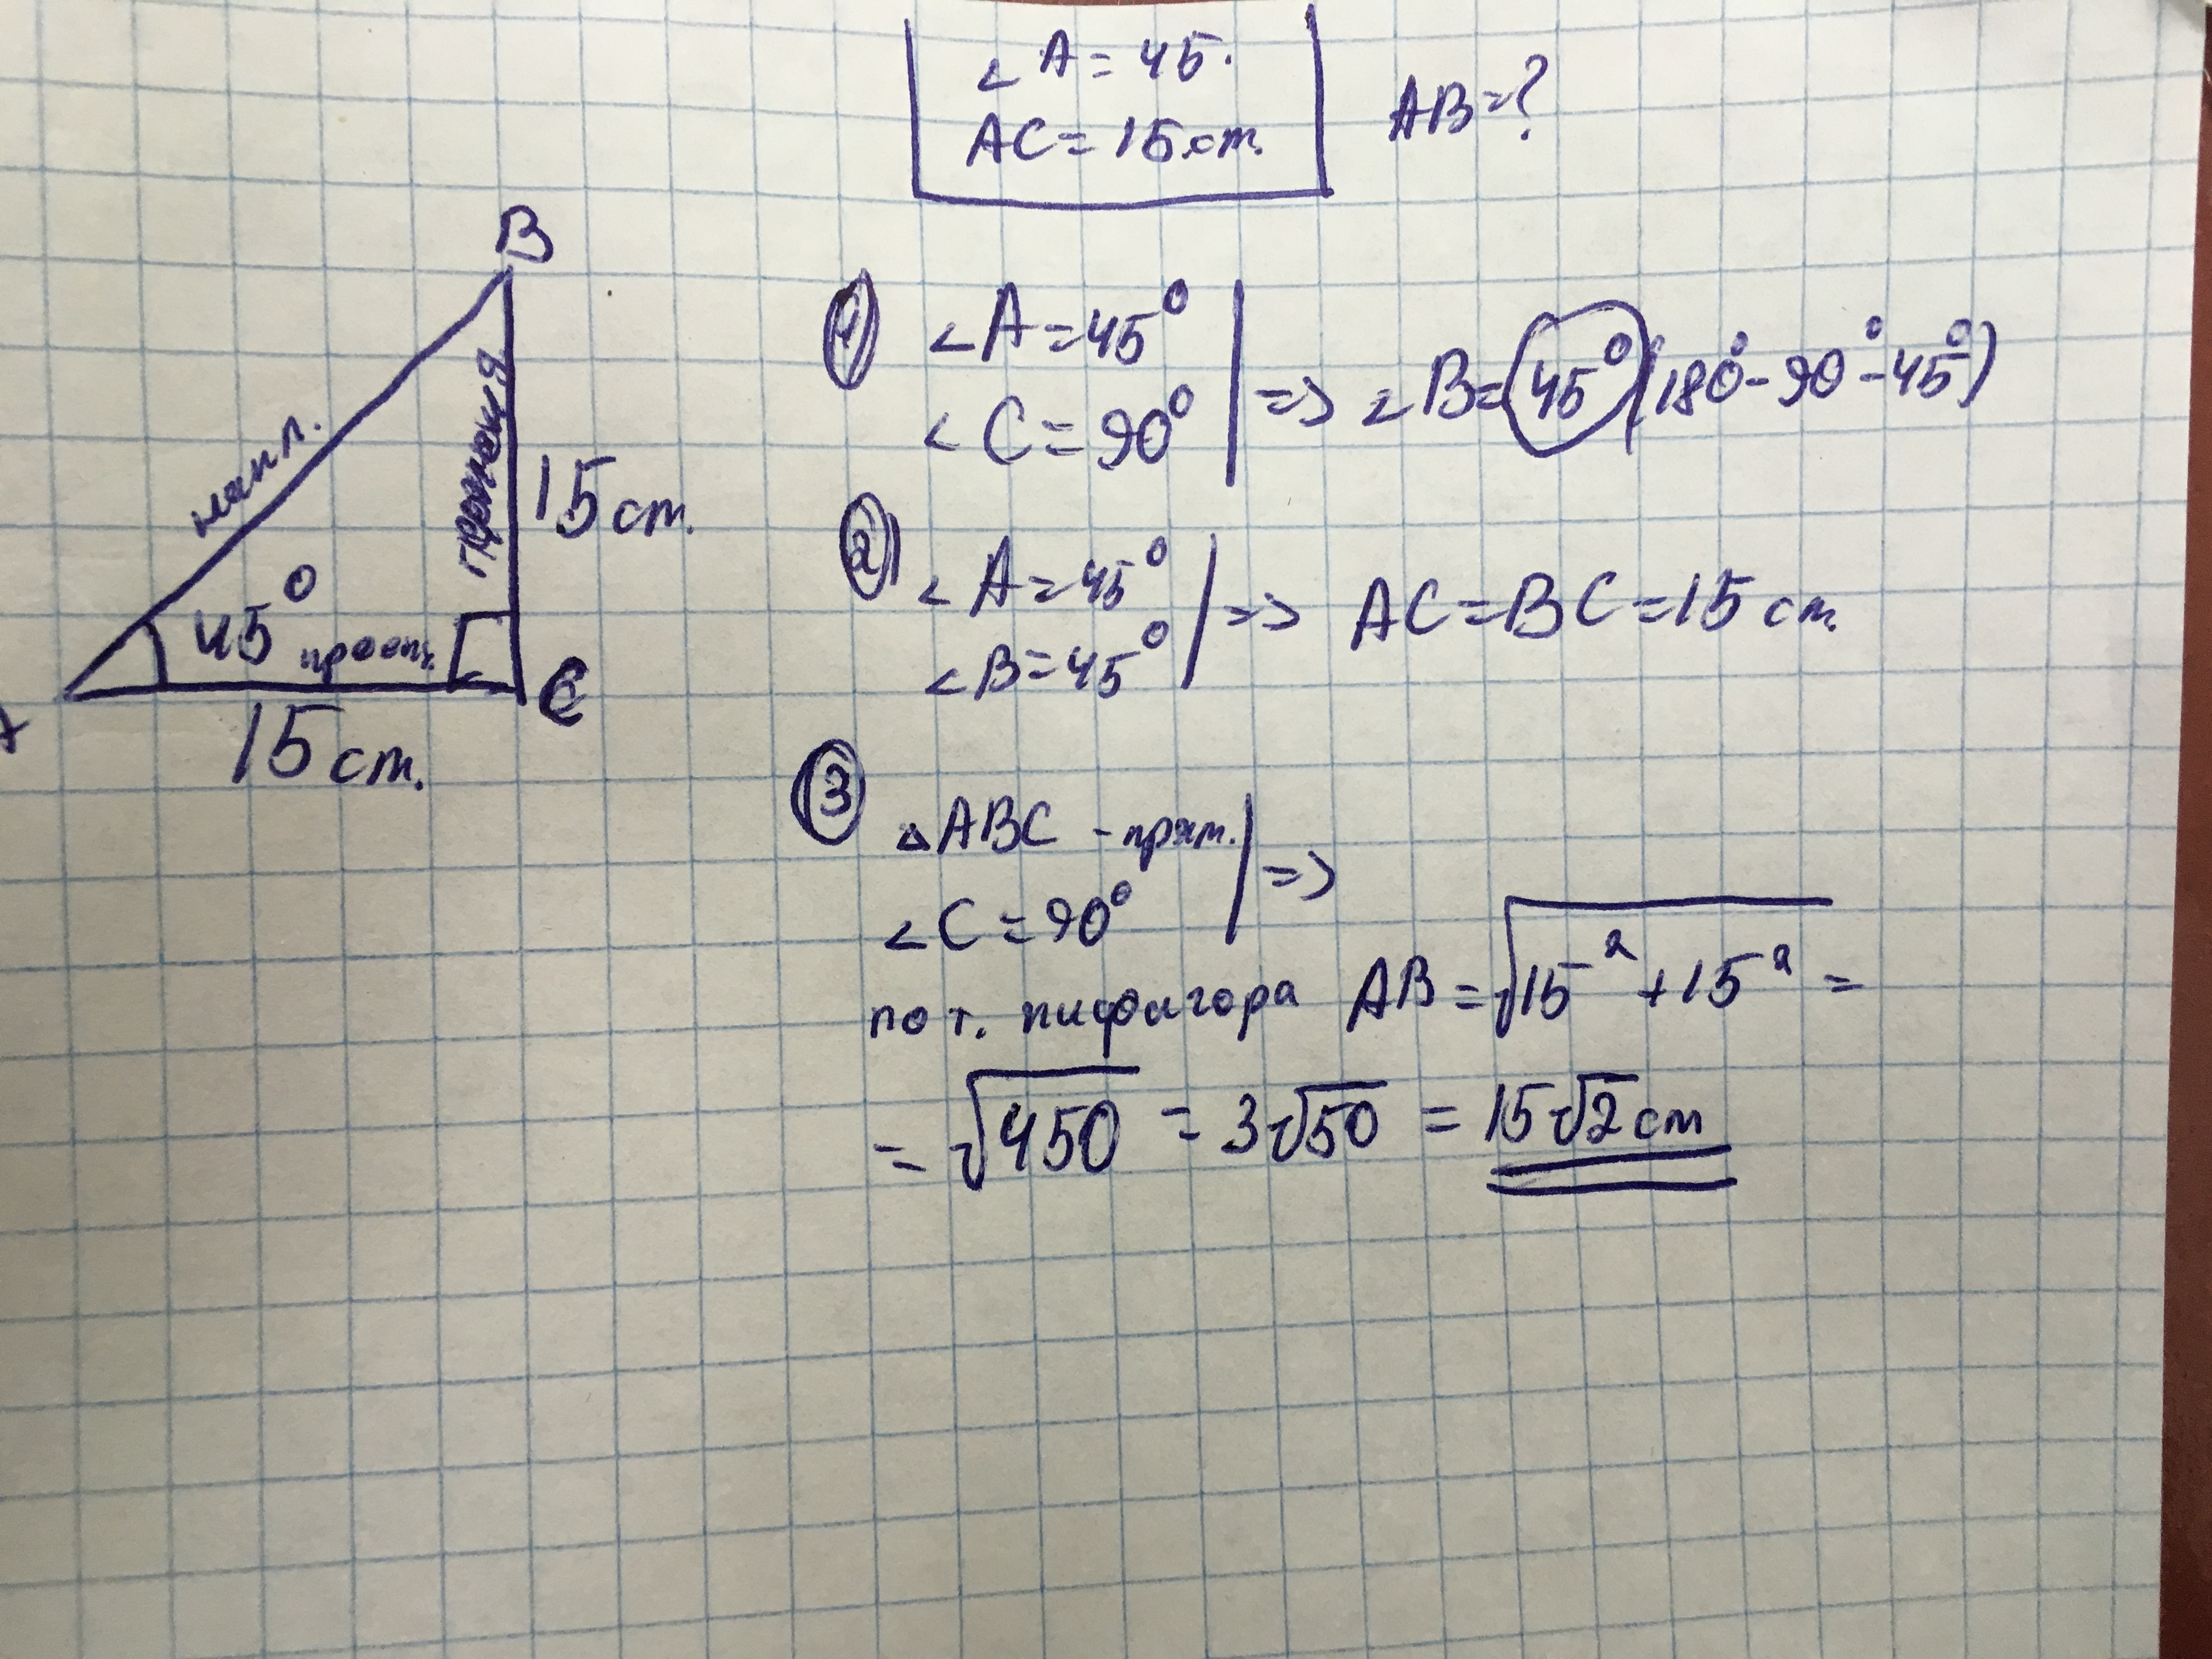 ∠A = 45.
AC = 15 cm.
AB = ?
B
напл.
15 cm.
45°
A
C
15 cm.
① ∠A = 45°
∠C = 90°
=> ∠B = 45° (180° - 90° - 45°)
② ∠A = 45°
∠B = 45°
=> AC = BC = 15 cm.
③ △ABC - прям.
∠C = 90°
=>
по т. пифагора AB = √15² + 15² =
= √450 = 3√50 = 15√2 cm